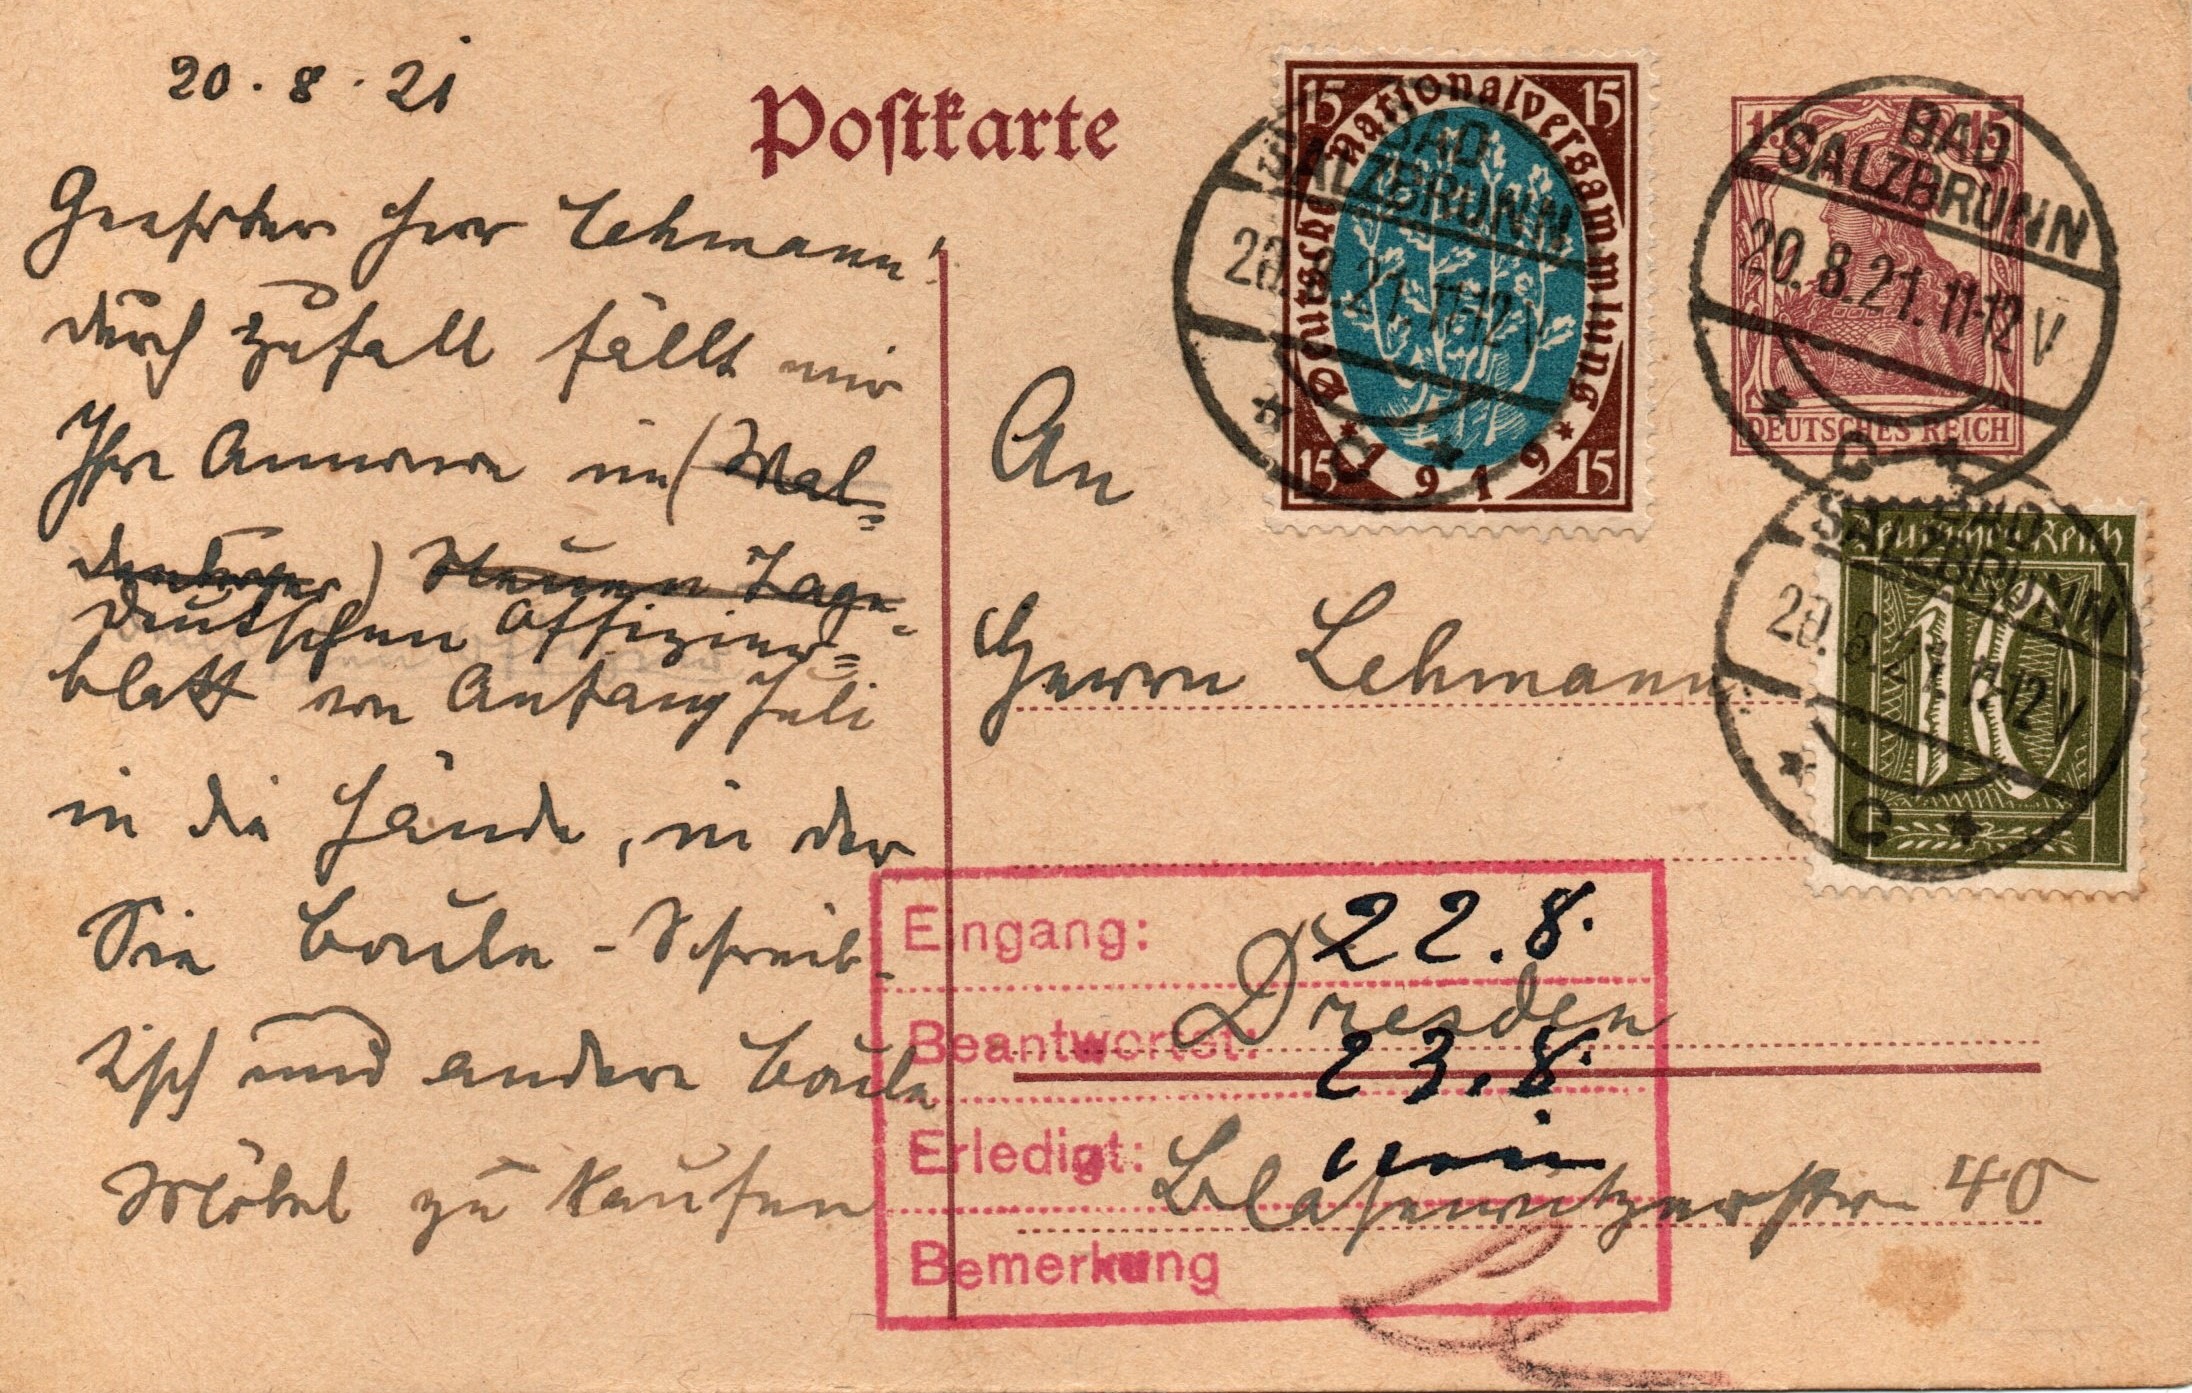 20.8.21
Postkarte
Geehrter Herr Lehmann!
durch Zufall fällt mir
Ihre Annonce im (Wal=
denburger) Neuen Tage-
Deutschen Offizier=
blatt von Anfang Juli
in die Hände, in der
Sie Boule-Schreib-
tisch und andere Boule
Möbel zu kaufen
15 15
Deutsche Nationalversammlung
15 1919 15
BAD
SALZBRUNN
20.8.21. 11-12 V
* C *
15 15
DEUTSCHES REICH
BAD
SALZBRUNN
20.8.21. 11-12 V
* C *
Deutsches Reich
10
BAD
SALZBRUNN
20.8.21. 11-12 V
* C *
An
Herrn Lehmann
Dresden
Blasewitzerstr. 40
Eingang: 22.8.
Beantwortet: 23.8.
Erledigt:
Bemerkung